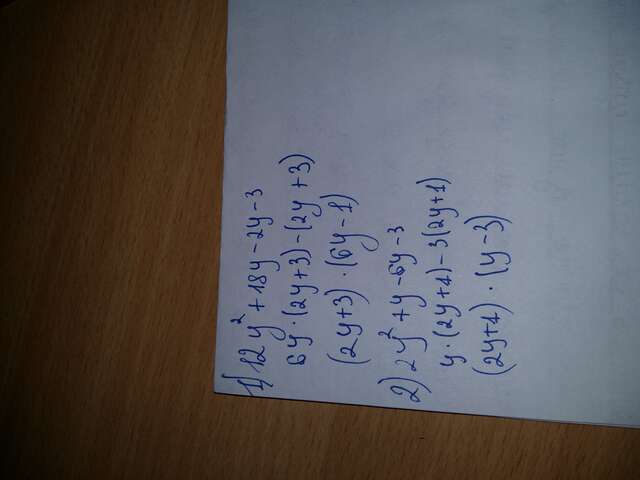 1) 12y² + 18y - 2y - 3
6y · (2y + 3) - (2y + 3)
(2y + 3) · (6y - 1)
2) 2y² + y - 6y - 3
y · (2y + 1) - 3(2y + 1)
(2y + 1) · (y - 3)